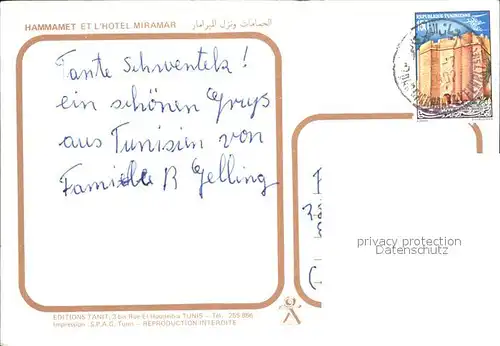 HAMMAMET ET L'HOTEL MIRAMAR الحمامات ونزل الميرامار
REPUBLIQUE TUNISIENNE
Tante Schwentek!
ein schönen Gruß
aus Tunisien von
Familie R Gelling
privacy protection
DATENSCHUTZ
EDITIONS TANIT, 3 bis Rue El Houdaybia TUNIS - Tél.: 255 896
Impression : S.P.A.G. Tunis - REPRODUCTION INTERDITE